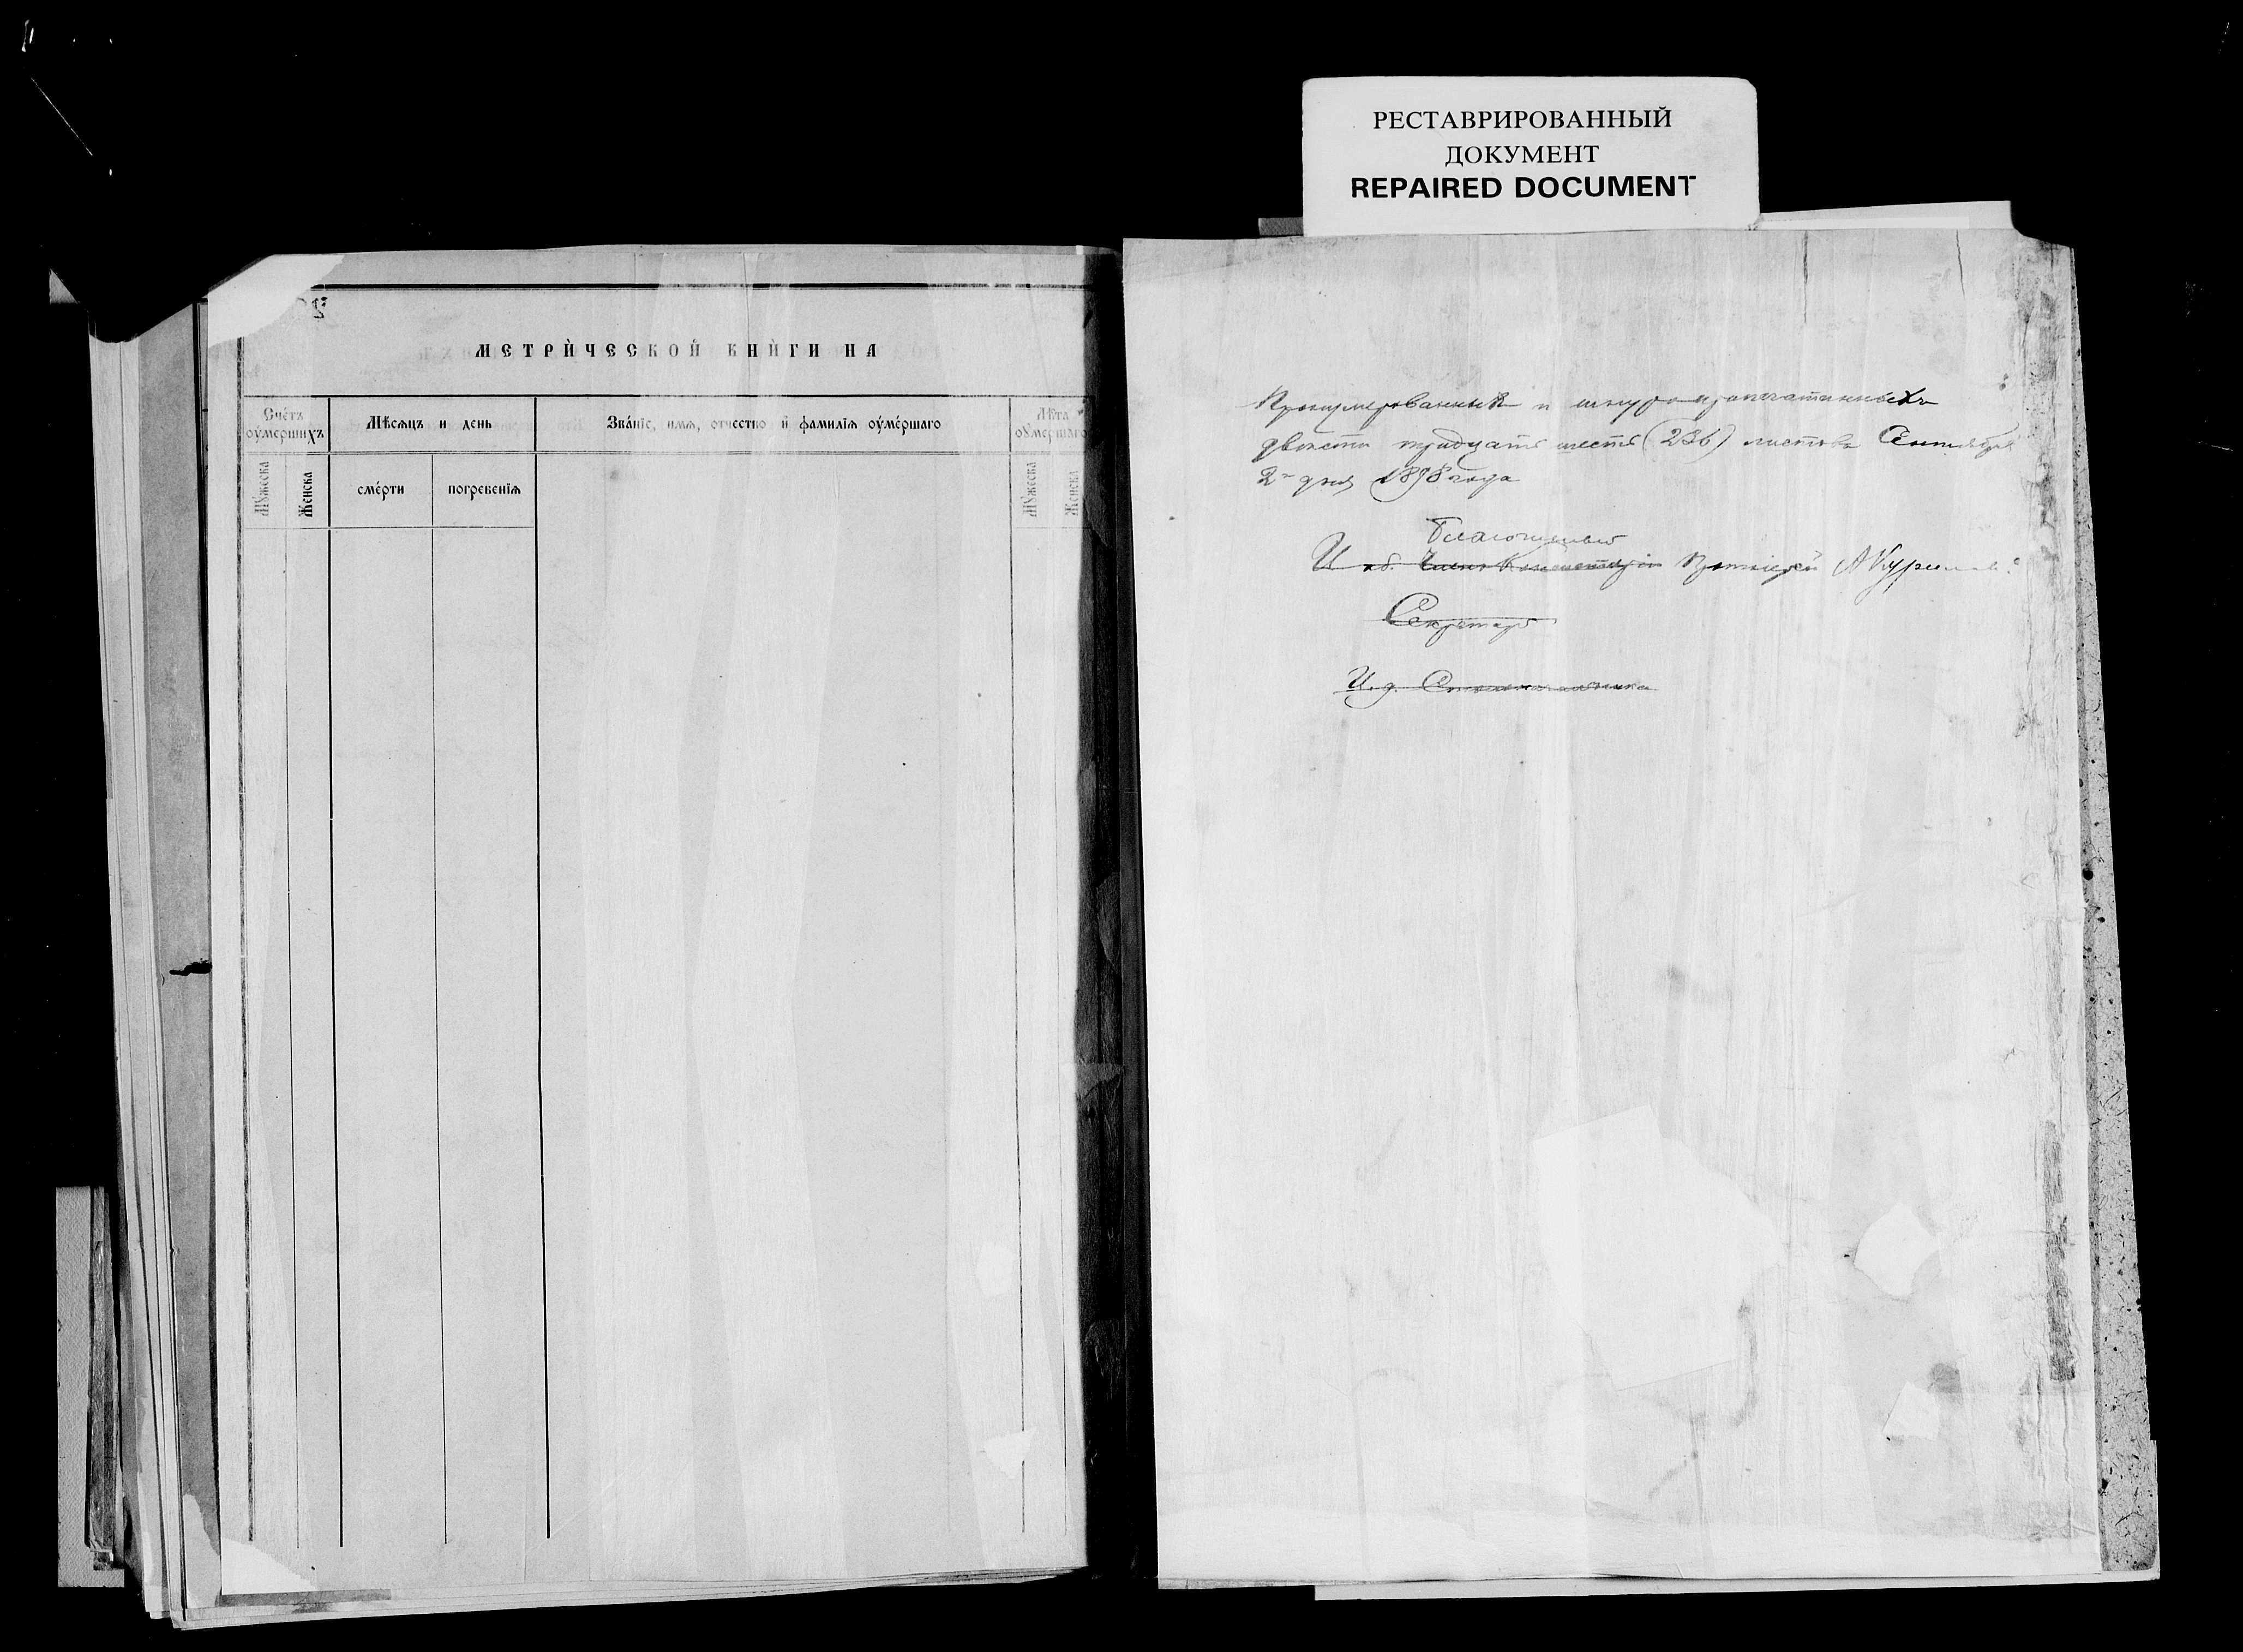 РЕСТАВРИРОВАННЫЙ
ДОКУМЕНТ
REPAIRED DOCUMENT
МЕТРИ́ЧЕСКОЙ КНИ́ГИ НА
Сче́тъ оу҆ме́ршихъ
Мѣсѧцъ и день
Зва́нїе, имѧ, отчество и фами́лїѧ оу҆ме́ршаго
Лѣта оу҆ме́ршаго
Мꙋжеска
Женска
сме́рти
погребенїѧ
Мꙋжеска
Женска
Пронумерованныхъ и шнуропропечатанныхъ
двѣсти тридцать шесть (236) листовъ Сентября
2го дня 1898 года
Благочинный
И. об. Члена Консисторіи Протоіерей А Кури
Секретарь
И. д. Столоначальника